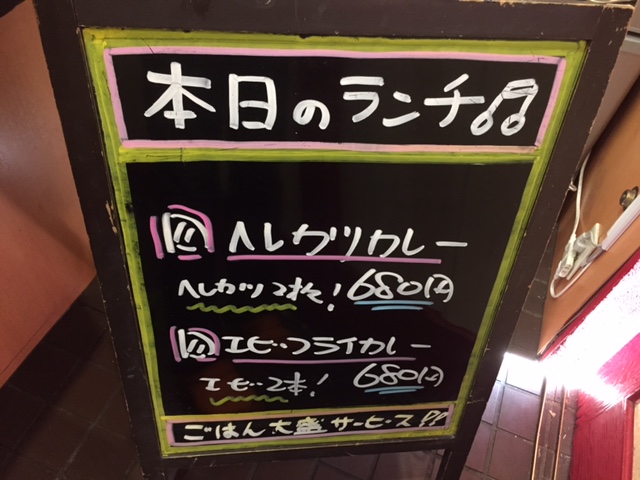 本日のランチ♫
ヘレカツカレー
ヘレカツ2枚! 680円
エビフライカレー
エビ2本! 680円
ごはん大盛サービス!!